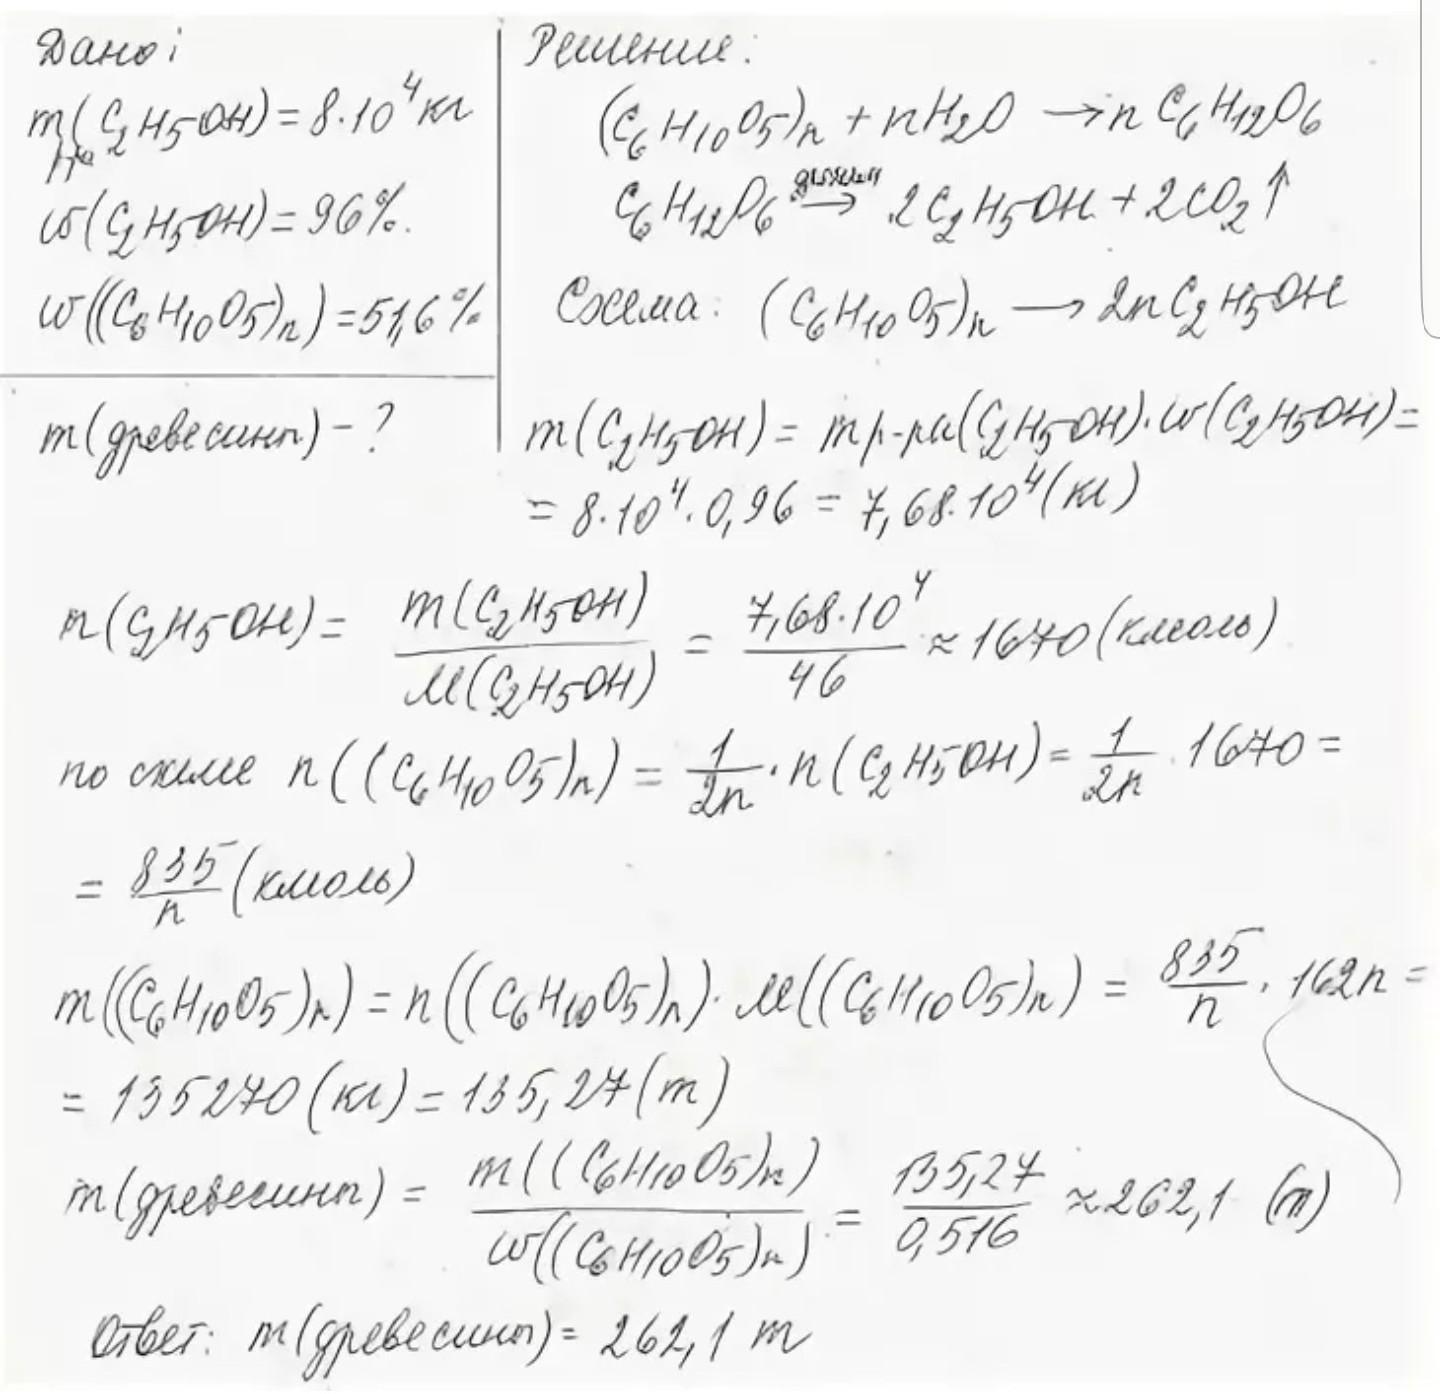 Дано:
m р-ра(C₂H₅OH) = 8·10⁴ кг
ω(C₂H₅OH) = 96%.
ω((C₆H₁₀O₅)ₙ) = 51,6%
m(древесины) - ?
Решение:
(C₆H₁₀O₅)ₙ + nH₂O → nC₆H₁₂O₆
C₆H₁₂O₆ дрожжи → 2C₂H₅OH + 2CO₂↑
Схема: (C₆H₁₀O₅)ₙ → 2nC₂H₅OH
m(C₂H₅OH) = m р-ра(C₂H₅OH)·ω(C₂H₅OH) =
= 8·10⁴·0,96 = 7,68·10⁴ (кг)
n(C₂H₅OH) = m(C₂H₅OH) / M(C₂H₅OH) = 7,68·10⁴ / 46 ≈ 1670 (кмоль)
по схеме n((C₆H₁₀O₅)ₙ) = 1/2n · n(C₂H₅OH) = 1/2n · 1670 =
= 835/n (кмоль)
m((C₆H₁₀O₅)ₙ) = n((C₆H₁₀O₅)ₙ)· M((C₆H₁₀O₅)ₙ) = 835/n · 162n =
= 135270 (кг) = 135,27 (т)
m(древесины) = m((C₆H₁₀O₅)ₙ) / ω((C₆H₁₀O₅)ₙ) = 135,27 / 0,516 ≈ 262,1 (т)
Ответ: m(древесины) = 262,1 т